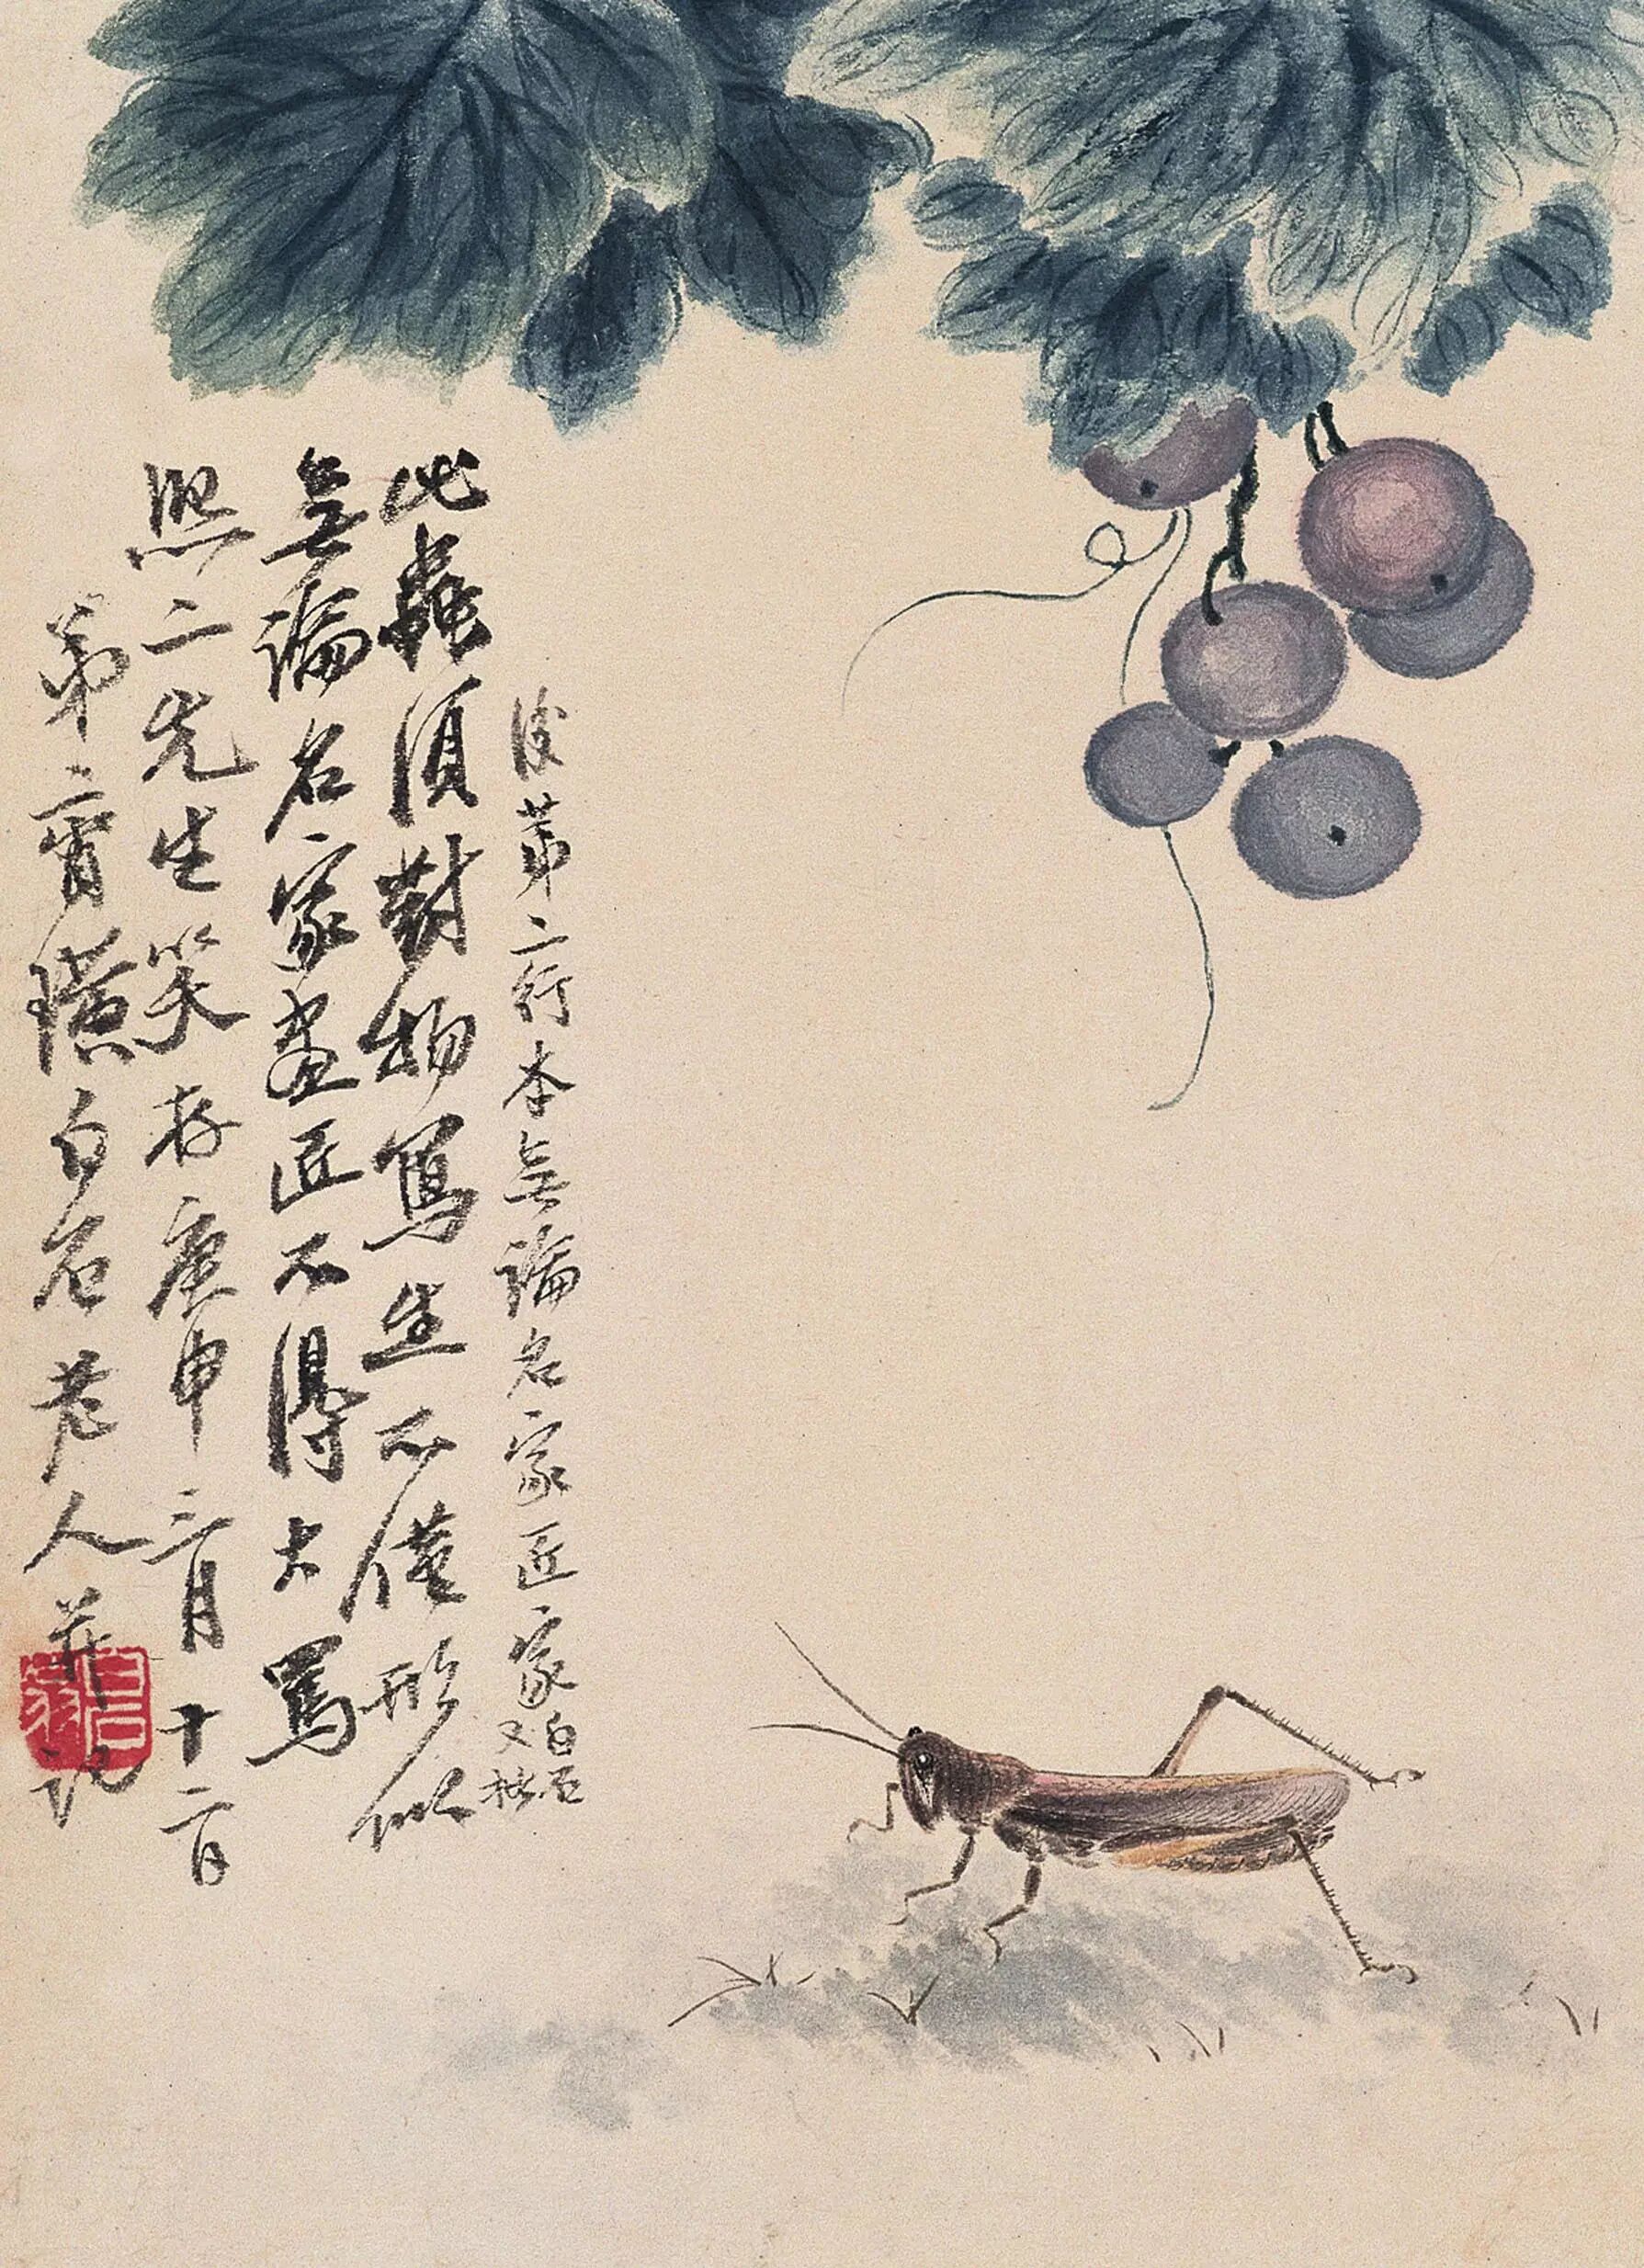 後第二行本無論名家匠家
白石
又批
此蟲須對物寫生不僅形似
無論名家畫匠不得大罵
熙二先生笑存庚申三月十二日
弟齊璜白石老人并記
白石翁